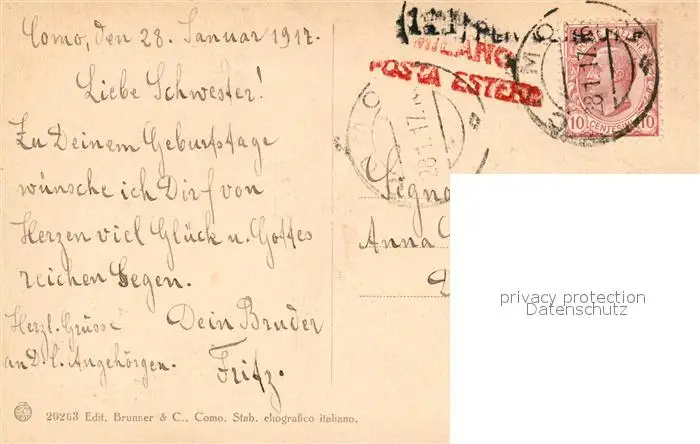 Como, den 28. Januar 1917.
Liebe Schwester!
Zu Deinem Geburtstage
wünsche ich Dir von
Herzen viel Glück u. Gottes
reichen Segen.
Herzl. Grüsse
an D. l. Angehörgen.
Dein Bruder
Fritz.
20263 Edit. Brunner & C., Como. Stab. eliografico italiano.
(121) PER
MILANO
POSTA ESTERA
28.1.17.
28.1.17.
10 CENTESIMI 10
Signo
Anna
privacy protection
Datenschutz